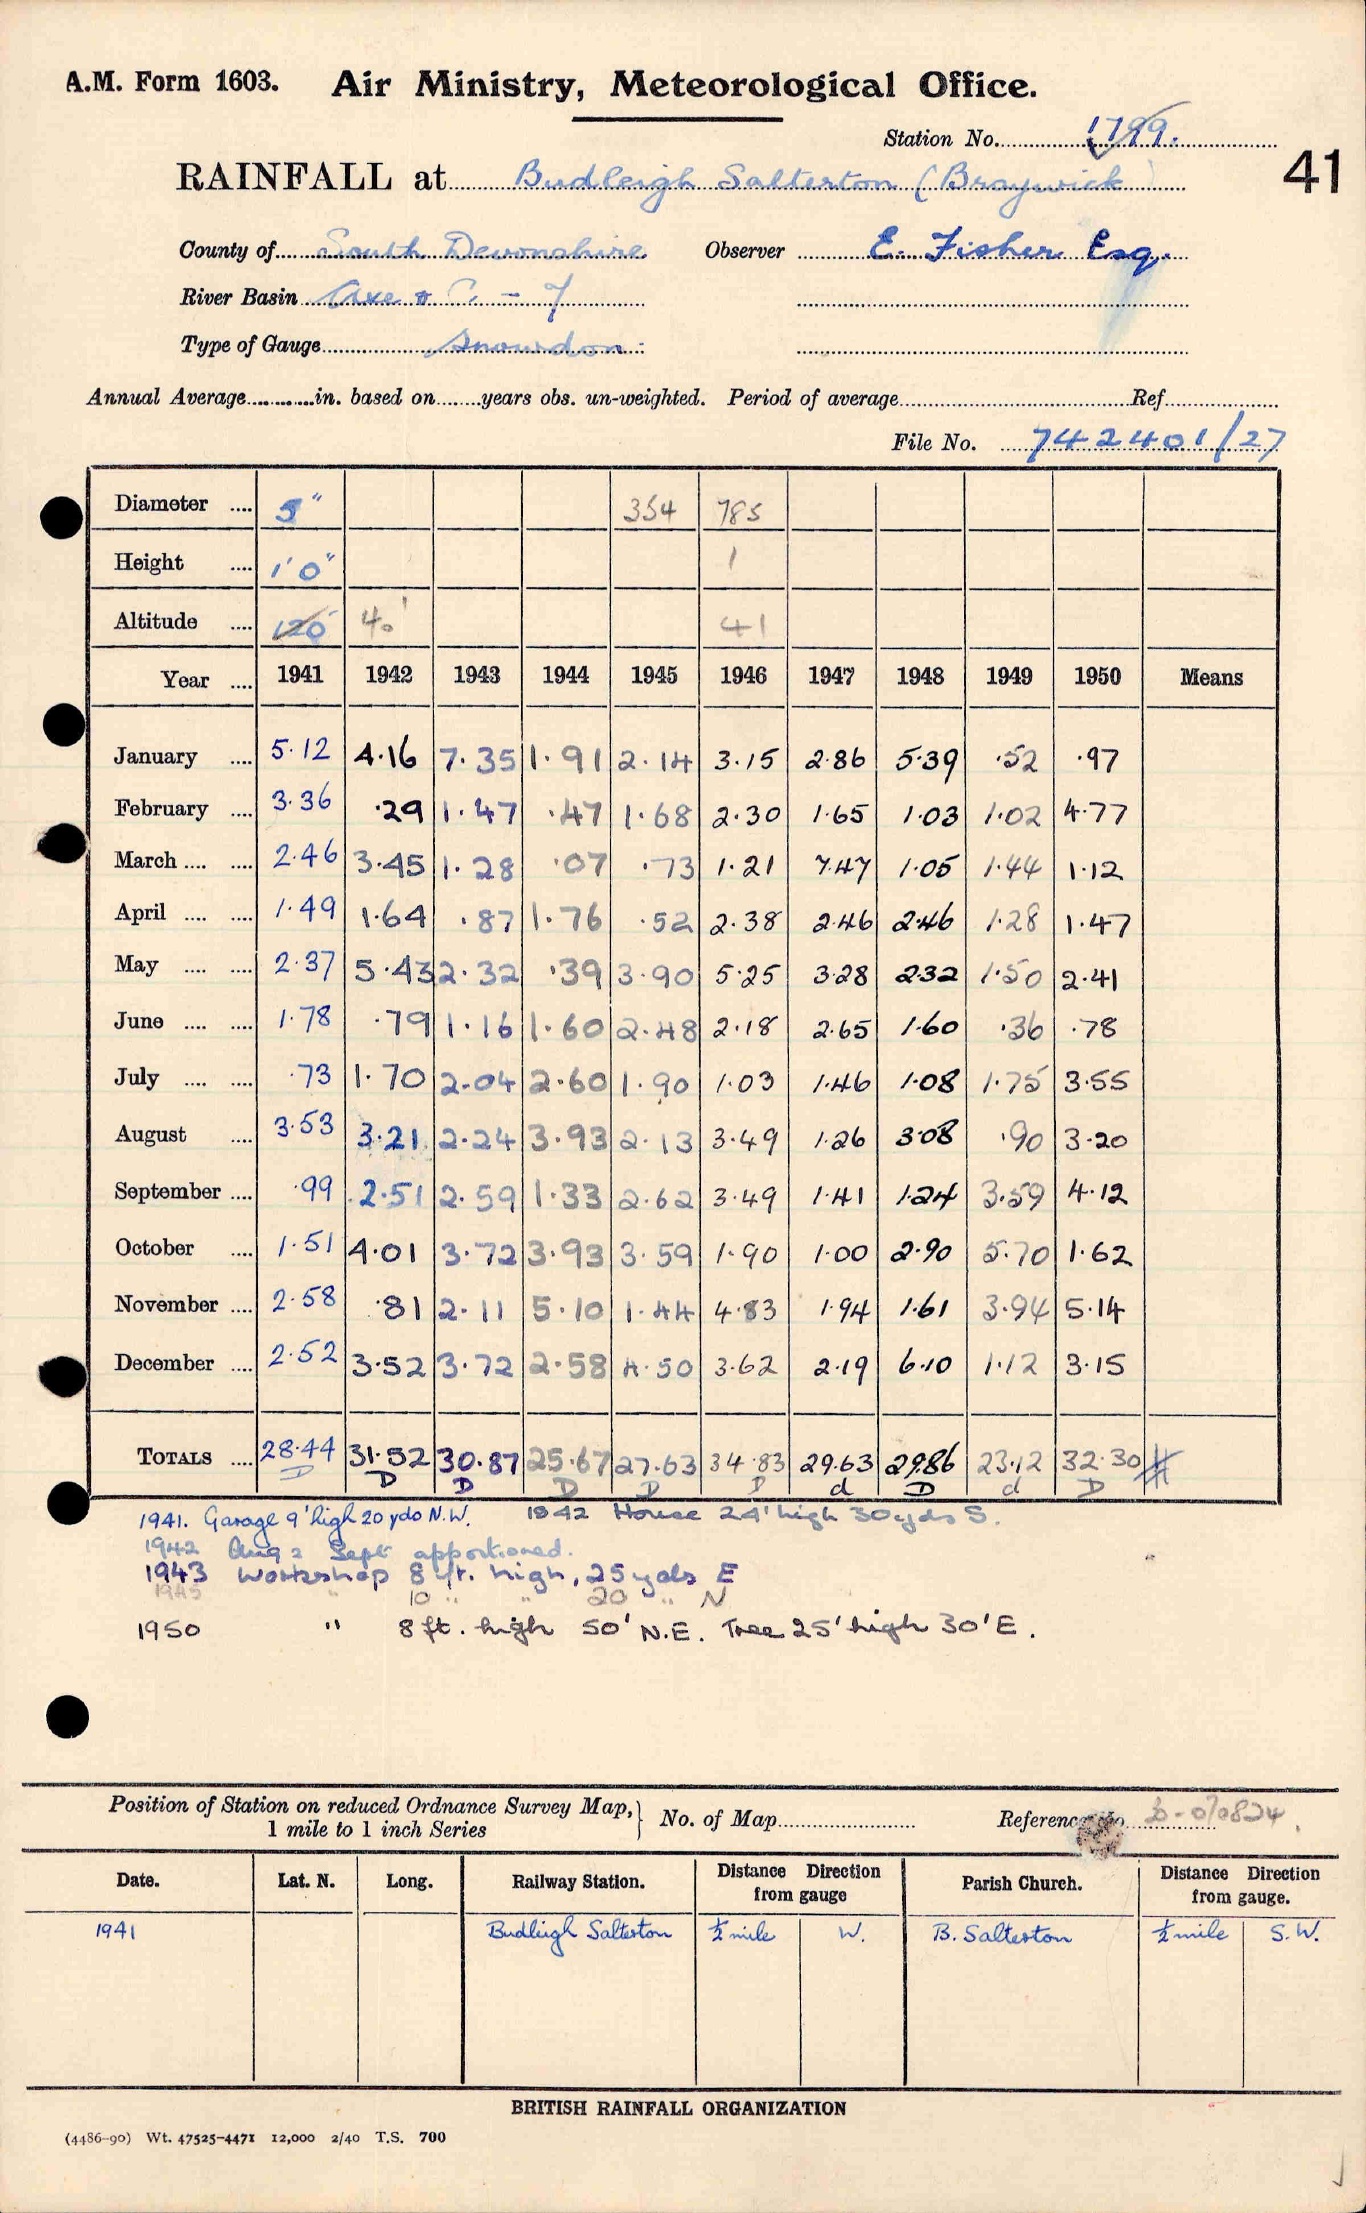 A.M. Form 1603. Air Ministry, Meteorological Office.
Station No. 1799.
41
RAINFALL at Budleigh Salterton (Braywick)
County of South Devonshire Observer E. Fisher Esq.
River Basin Axe & C. - 7
Type of Gauge Snowdon
Annual Average in. based on years obs. un-weighted. Period of average Ref
File No. 742401/27
Diameter 5" 354 785
Height 1'0" 1
Altitude 120 40' 41
Year 1941 1942 1943 1944 1945 1946 1947 1948 1949 1950 Means
January 5.12 4.16 7.35 1.91 2.14 3.15 2.86 5.39 .52 .97
February 3.36 .29 1.47 .47 1.68 2.30 1.65 1.03 1.02 4.77
March 2.46 3.45 1.28 .07 .73 1.21 7.47 1.05 1.44 1.12
April 1.49 1.64 .87 1.76 .52 2.38 2.46 2.46 1.28 1.47
May 2.37 5.43 2.32 .39 3.90 5.25 3.28 2.32 1.50 2.41
June 1.78 .79 1.16 1.60 2.48 2.18 2.65 1.60 .36 .78
July .73 1.70 2.04 2.60 1.90 1.03 1.46 1.08 1.75 3.55
August 3.53 3.21 2.24 3.93 2.13 3.49 1.26 3.08 .90 3.20
September .99 2.51 2.59 1.33 2.62 3.49 1.41 1.24 3.59 4.12
October 1.51 4.01 3.72 3.93 3.59 1.90 1.00 2.90 5.70 1.62
November 2.58 .81 2.11 5.10 1.44 4.83 1.94 1.61 3.94 5.14
December 2.52 3.52 3.72 2.58 4.50 3.62 2.19 6.10 1.12 3.15
TOTALS 28.44 31.52 30.87 25.67 27.63 34.83 29.63 29.86 23.12 32.30 #
D D D D D D d D d D
1941. Garage 9' high 20 yds N.W. 1942 House 24' high 30 yds S.
1942 Aug & Sept apportioned.
1943 Workshop 8 ft. high, 25 yds E
1945 " 10 " " 20 " N
1950 " 8 ft. high 50' N.E. Tree 25' high 30' E.
Position of Station on reduced Ordnance Survey Map, 1 mile to 1 inch Series } No. of Map Reference No
Date. Lat. N. Long. Railway Station. Distance Direction from gauge Parish Church. Distance Direction from gauge.
1941 Budleigh Salterton ½ mile W. B. Salterton ½ mile S.W.
BRITISH RAINFALL ORGANIZATION
(4486-90) Wt. 47525-4471 12,000 2/40 T.S. 700